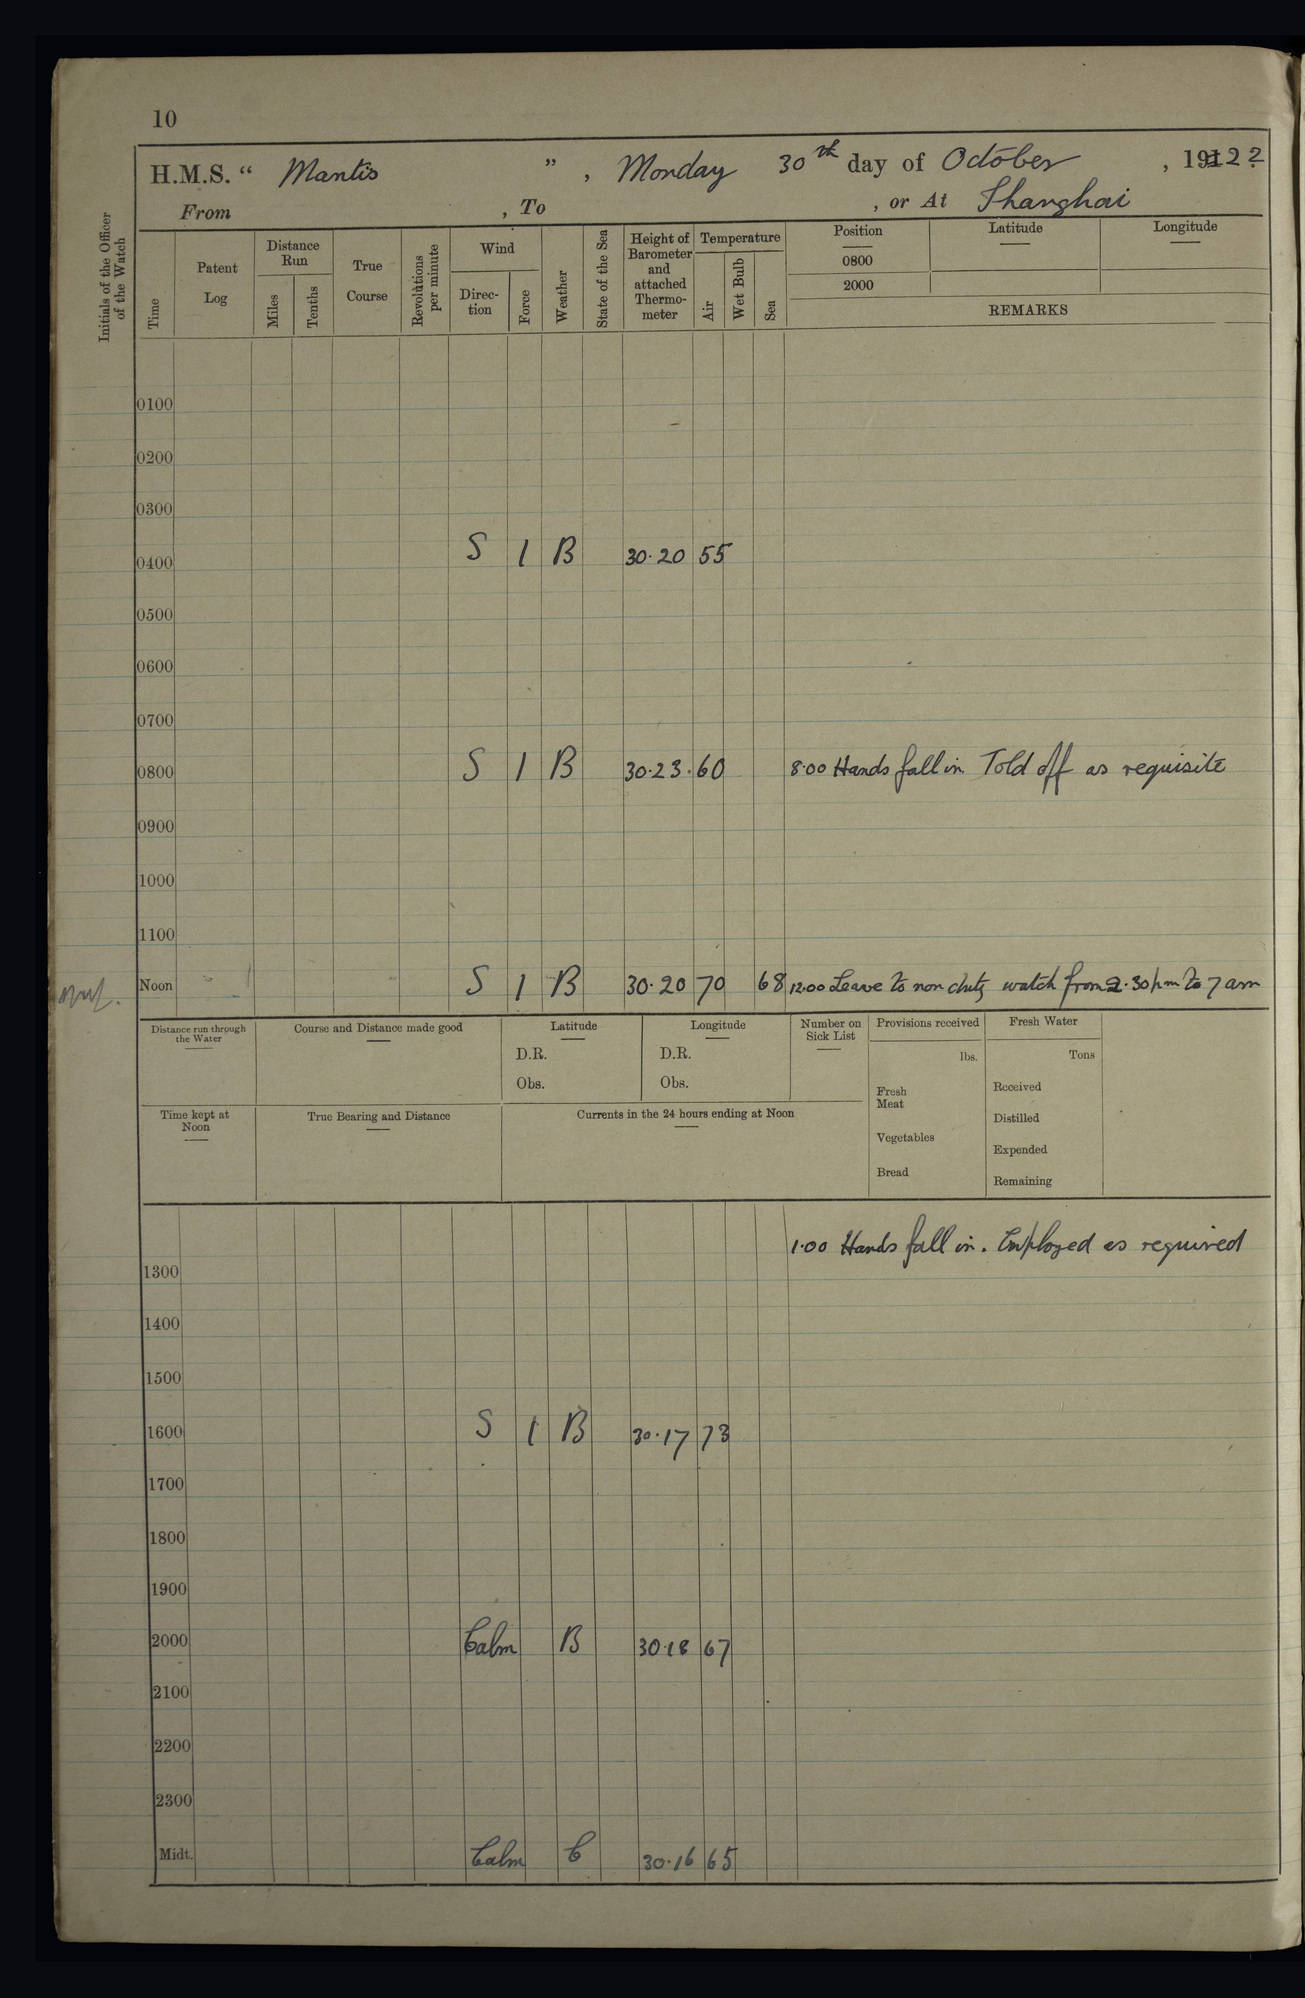 10
H.M.S. “ Mantis ” , Monday 30th day of October , 1922
From , To , or At Shanghai
Initials of the Officer of the Watch
Time
Patent Log
Distance Run
Miles
Tenths
True Course
Revolutions per minute
Wind
Direc-tion
Force
Weather
State of the Sea
Height of Barometer and attached Thermo-meter
Temperature
Air
Wet Bulb
Sea
Position
0800
2000
Latitude
Longitude
REMARKS
0100
0200
0300
0400 S 1 B 30·20 55
0500
0600
0700
0800 S 1 B 30·23· 60 8·00 Hands fall in Told off as requisite
0900
1000
1100
Noon S 1 B 30·20 70 68 12.00 Leave to non duty watch from 2·30pm to 7 am
Distance run through the Water
Course and Distance made good
Latitude
D.R.
Obs.
Longitude
D.R.
Obs.
Number on Sick List
Provisions received
lbs.
Fresh Meat
Vegetables
Bread
Fresh Water
Tons
Received
Distilled
Expended
Remaining
Time kept at Noon
True Bearing and Distance
Currents in the 24 hours ending at Noon
1·00 Hands fall in. Employed as required
1300
1400
1500
1600 S 1 B 30·17 73
1700
1800
1900
2000 Calm B 30·18 67
2100
2200
2300
Midt. Calm C 30·16 65